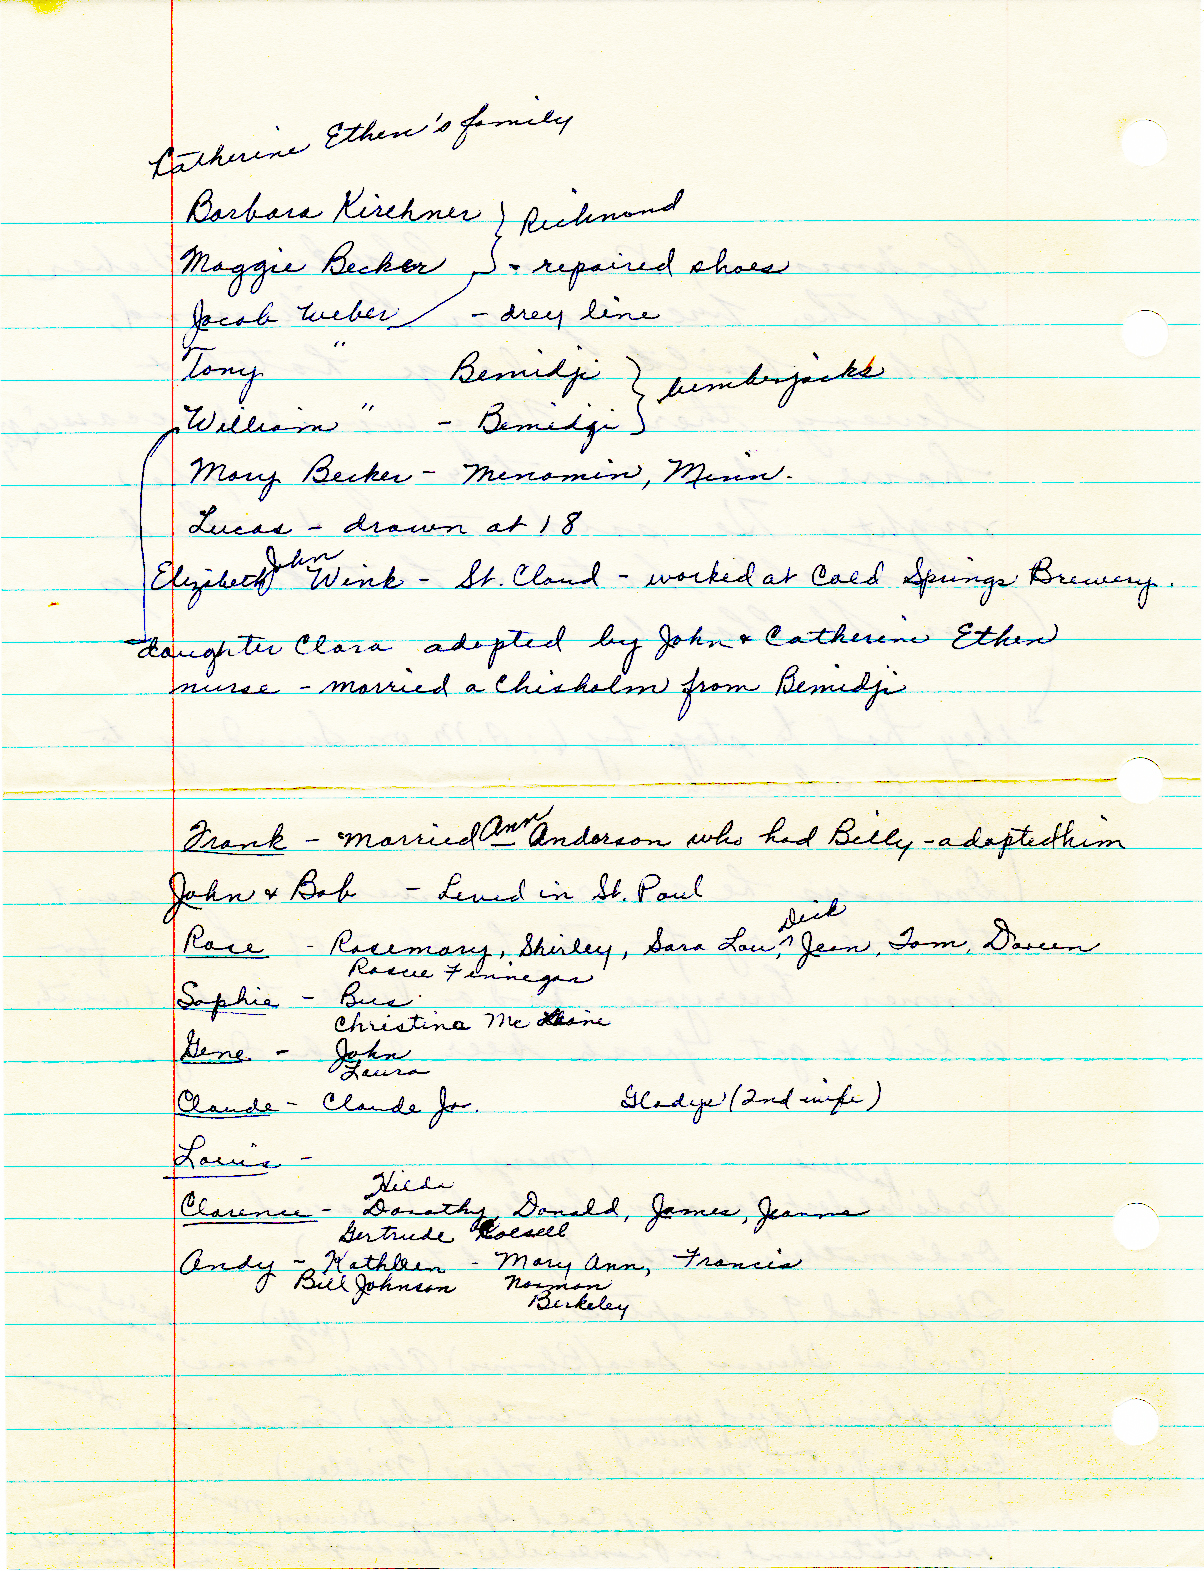 Catherine Ethen's family
Barbara Kirchner } Richmond
Maggie Becker - repaired shoes
Jacob Weber - drey line
Tony " Bemidji } lumberjacks
William " - Bemidji
Mary Becker - Menomin, Minn.
Lucas - drawn at 18
John
Elizabeth Wink - St. Cloud - worked at Cold Springs Brewery.
daughter Clara adopted by John & Catherine Ethen
nurse - married a Chisholm from Bemidji
Frank - married Ann Anderson who had Billy - adopted him
John & Bob - Lived in St. Paul
Dick
Rose - Rosemary, Shirley, Sara Lou, ^ Jean, Tom, Doreen
Roscie Finnegan
Sophie - Bus
Christine Mc
Gene - John
Laura
Claude - Claude Jr. Gladys (2nd wife)
Louis -
Hilda
Clarence - Dorothy, Donald, James, Jeanne
Gertrude
Andy - Kathleen - Mary Ann, Francis
Bill Johnson Norman
Berkeley